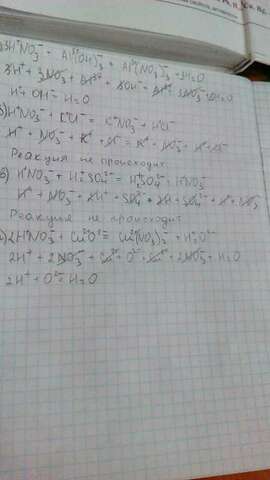 3HNO₃ + Al(OH)₃ = Al(NO₃)₃ + 3H₂O
3H⁺ + 3NO₃⁻ + Al³⁺ + 3OH⁻ = Al³⁺ + 3NO₃⁻ + 3H₂O
H⁺ + OH⁻ = H₂O
H⁺NO₃⁻ + K⁺Cl⁻ = K⁺NO₃⁻ + H⁺Cl⁻
H⁺ + NO₃⁻ + K⁺ + Cl⁻ = K⁺ + NO₃⁻ + H⁺ + Cl⁻
Реакция не происходит.
в) H⁺NO₃⁻ + H₂⁺SO₄²⁻ = H₂⁺SO₄²⁻ + H⁺NO₃⁻
H⁺ + NO₃⁻ + 2H⁺ + SO₄²⁻ = 2H + SO₄²⁻ + H⁺ + NO₃⁻
Реакция не происходит.
2H⁺NO₃⁻ + Cu²⁺O²⁻ = Cu²⁺(NO₃)₂⁻ + H₂⁺O²⁻
2H⁺ + 2NO₃⁻ + Cu²⁺ + O²⁻ = Cu²⁺ + 2NO₃⁻ + H₂O
2H⁺ + O²⁻ = H₂O